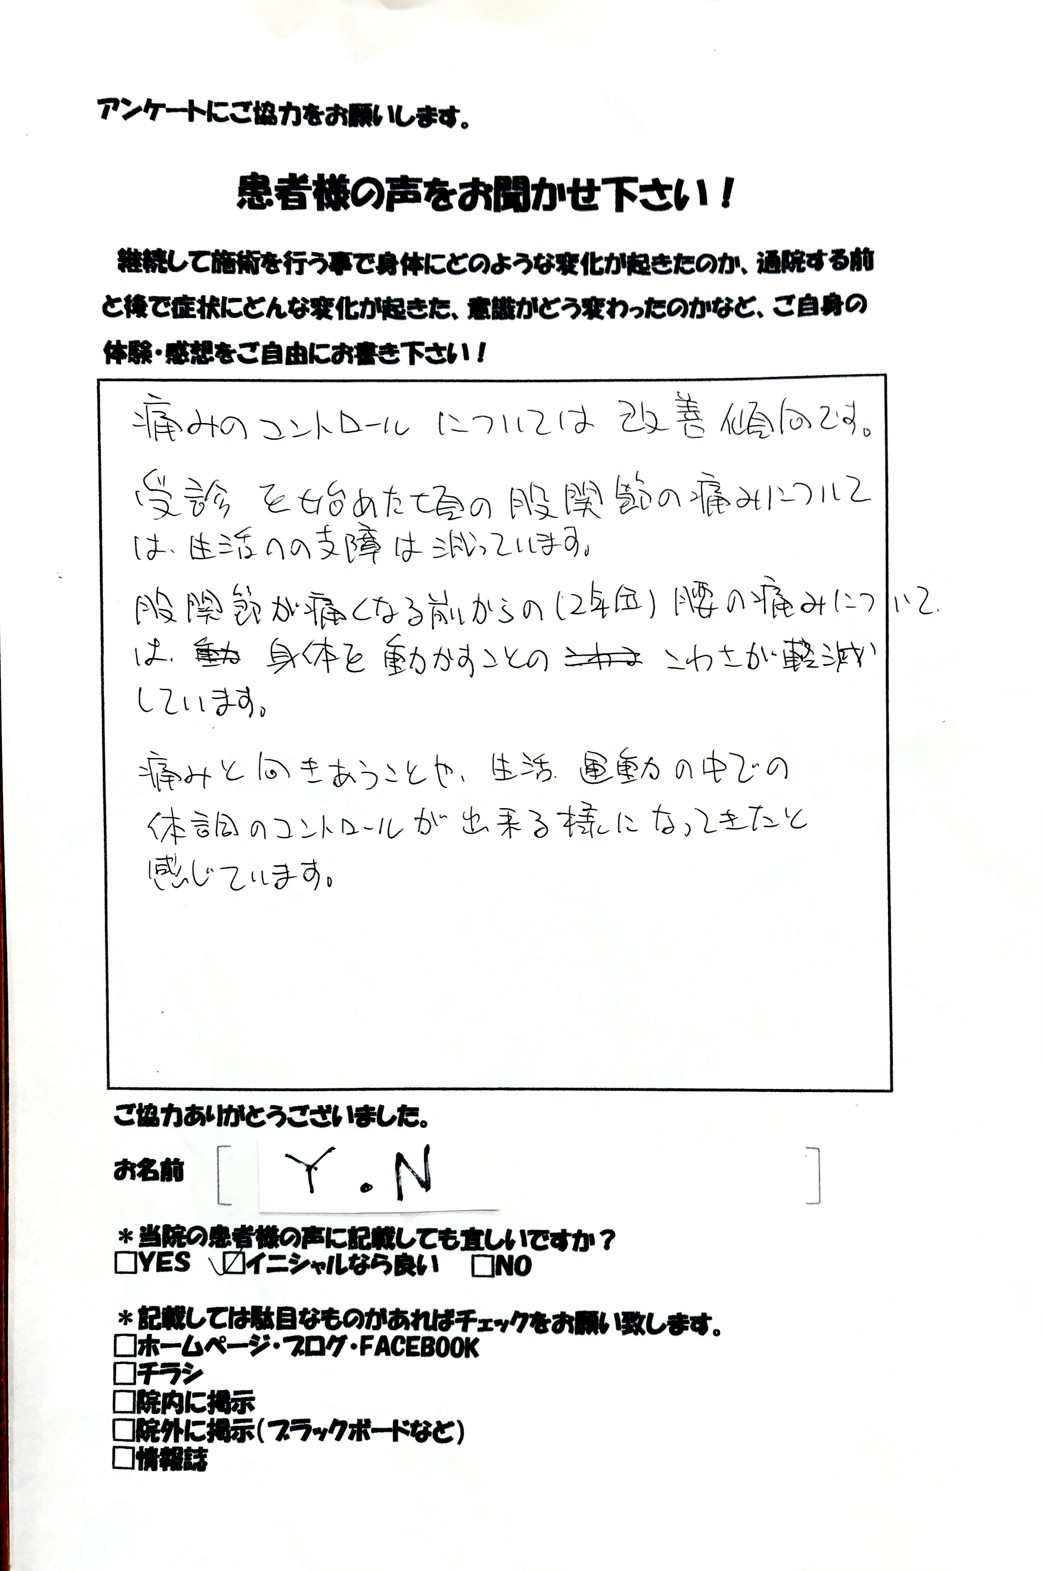 アンケートにご協力をお願いします。
患者様の声をお聞かせ下さい！
継続して施術を行う事で身体にどのような変化が起きたのか、通院する前
と後で症状にどんな変化が起きた、意識がどう変わったのかなど、ご自身の
体験・感想をご自由にお書き下さい！
痛みのコントロールについては改善傾向です。
受診を始めた頃の股関節の痛みについて
は、生活への支障は減っています。
股関節が痛くなる前からの(2年位)腰の痛みについて
は、動 身体を動かすことの こわさが軽減
しています。
痛みと向きあうことや、生活、運動の中での
体調のコントロールが出来る様になってきたと
感じています。
ご協力ありがとうございました。
お名前 [ Y.N ]
＊当院の患者様の声に記載しても宜しいですか？
□YES ☑イニシャルなら良い □NO
＊記載しては駄目なものがあればチェックをお願い致します。
□ホームページ・ブログ・FACEBOOK
□チラシ
□院内に掲示
□院外に掲示(ブラックボードなど)
□情報誌